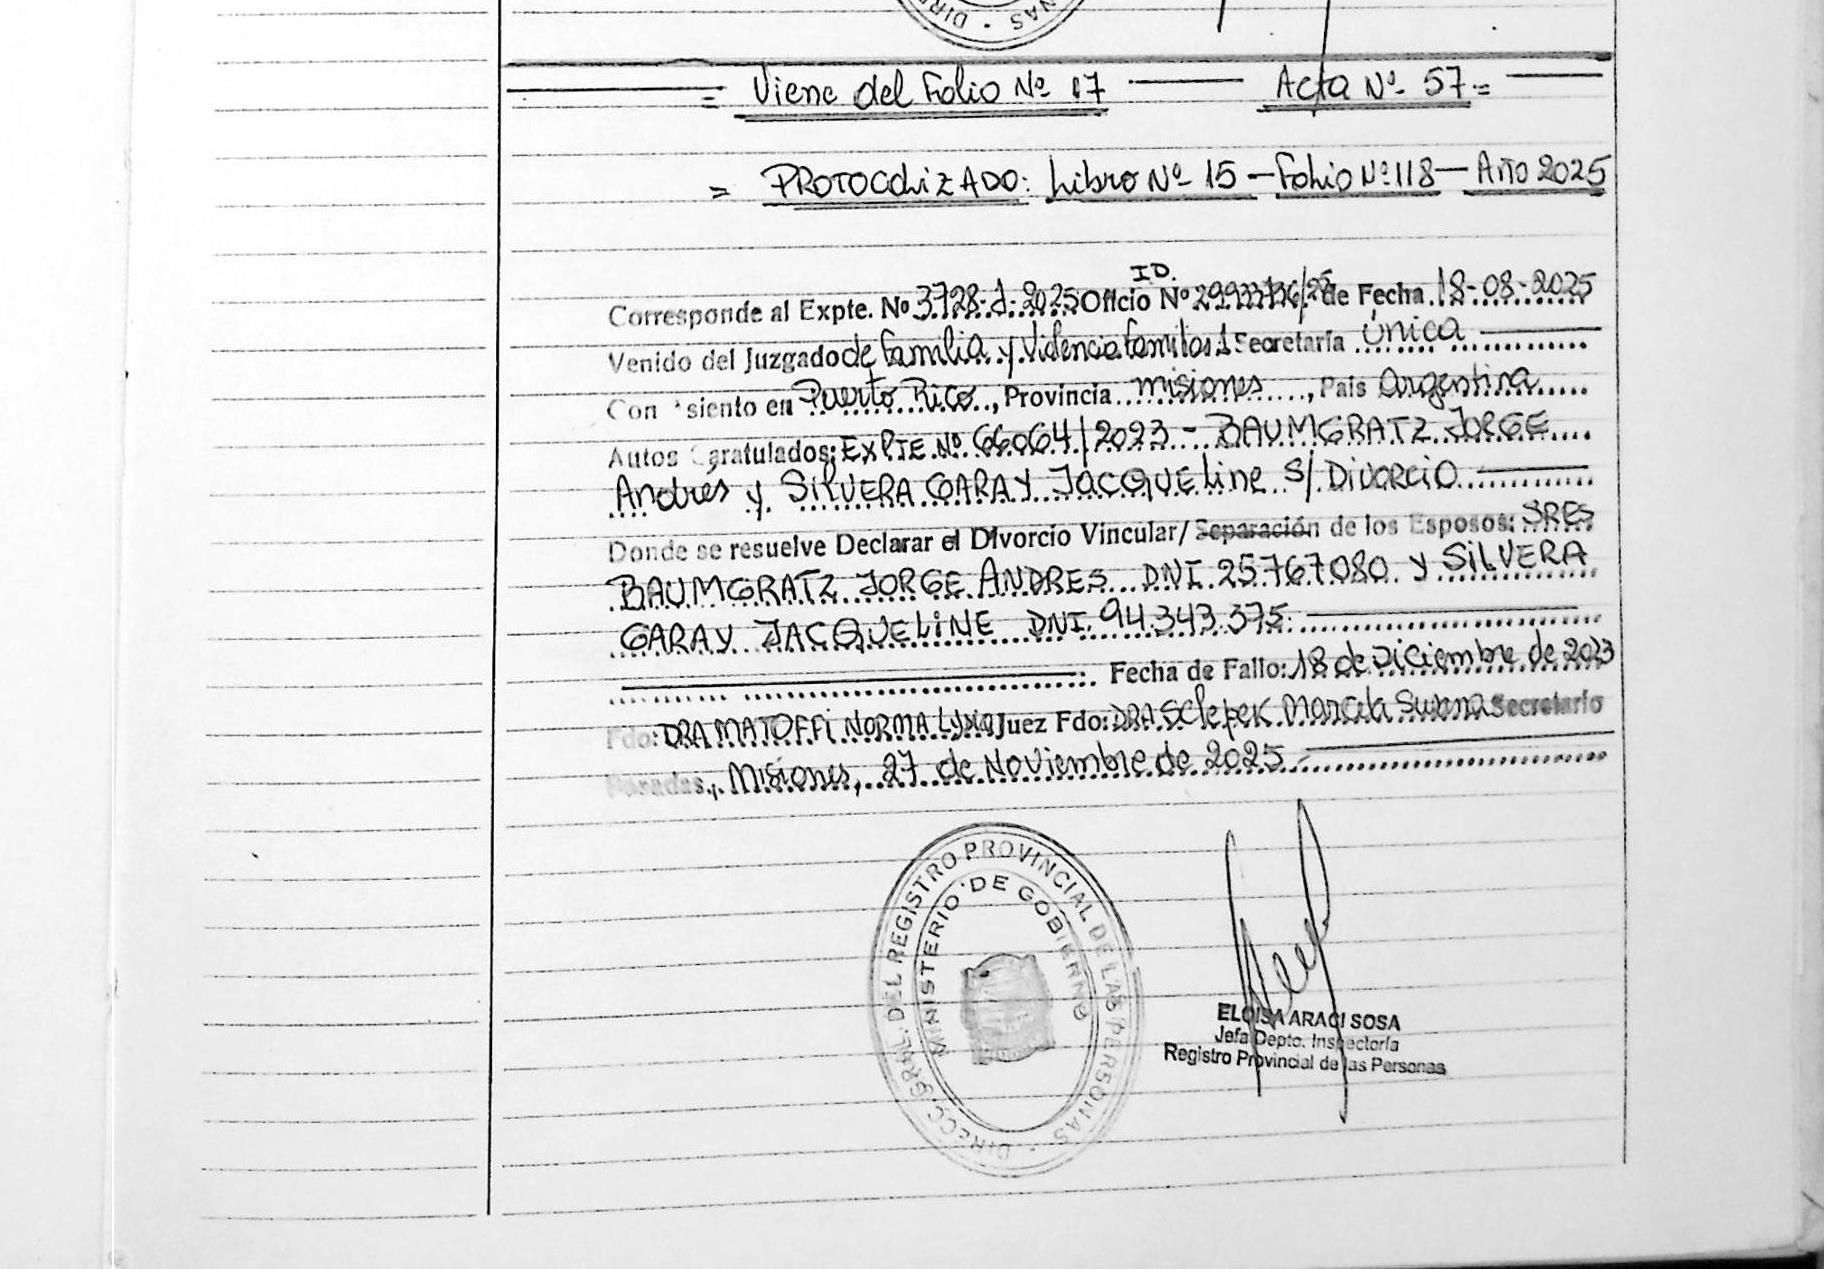 = Viene del Folio Nº 17 — Acta Nº 57=
= PROTOCOLIZADO: Libro Nº 15 — Folio Nº 118 — Año 2025
I.D.
Corresponde al Expte. Nº 3728-J-2025 Oficio Nº /25 de Fecha 18-08-2025
Venido del Juzgado de Familia y Violencia Familiar 1 Secretaría Única
Con siento en Puerto Rico, Provincia misiones, País Argentina
Autos Caratulados: EXPTE Nº 66064/2023 - BAUMGRATZ JORGE
Andrés y SILVERA GARAY JACQUELine S/ DIVORCIO
Donde se resuelve Declarar el Divorcio Vincular/ Separación de los Esposos: SRES
BAUMGRATZ JORGE ANDRES DNI 25.767.080 y SILVERA
GARAY JACQUELINE DNI. 94.343.375.
Fecha de Fallo: 18 de Diciembre de 2023
Fdo: DRA MATOFFI NORMA Lydia Juez Fdo: DRA Sclepek Marcela Susana Secretario
Posadas, Misiones, 27 de Noviembre de 2025
DIRECC. GRAL. DEL REGISTRO PROVINCIAL DE LAS PERSONAS
MINISTERIO DE GOBIERNO
ELOISA ARACI SOSA
Jefa Depto. Inspectoría
Registro Provincial de las Personas